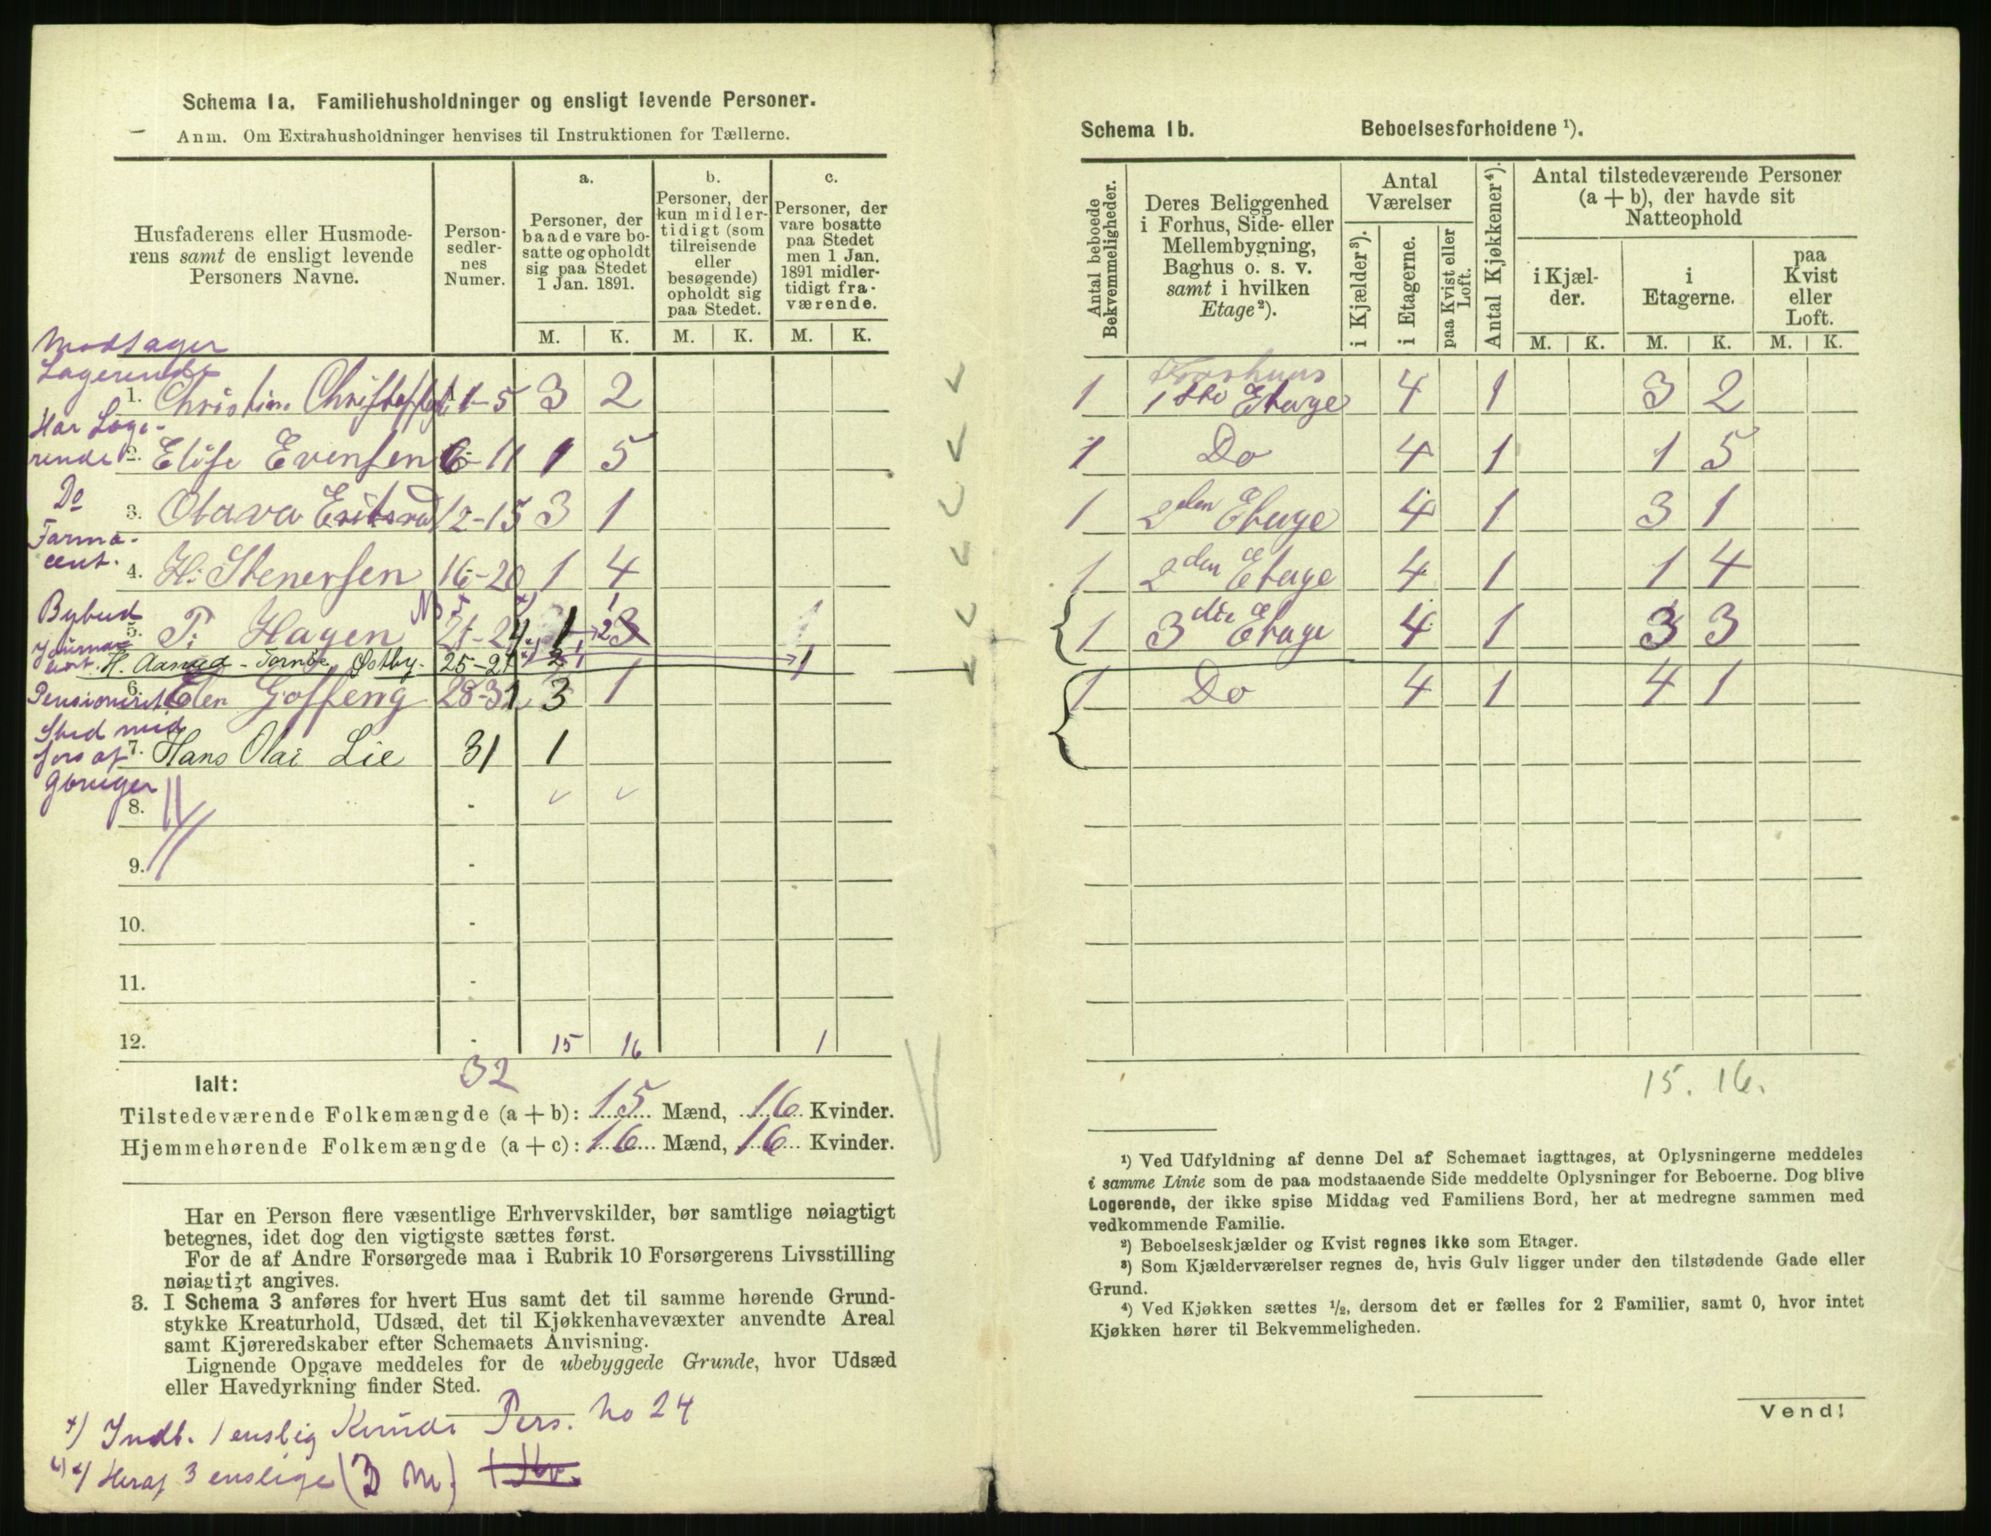 Schema 1a. Familiehusholdninger og ensligt levende Personer.
Anm. Om Extrahusholdninger henvises til Instruktionen for Tællerne.
Husfaderens eller Husmode-
rens samt de ensligt levende
Personers Navne.
Person-
sedler-
nes
Numer.
a.
Personer, der
baade vare bo-
satte og opholdt
sig paa Stedet
1 Jan. 1891.
b.
Personer, der
kun midler-
tidigt (som
tilreisende
eller
besøgende)
opholdt sig
paa Stedet.
c.
Personer, der
vare bosatte
paa Stedet
men 1 Jan.
1891 midler-
tidigt fra-
værende.
M. K. M. K. M. K.
Modtager
Logerende
1. Christin. 1-5 3 2
Har Loge-
rende
2. Elise Evensen 6-11 1 5
Do
3. Olava 12-15 3 1
Farma-
ceut.
4. H. Stenersen 16-20 1 4
Bybud
5. P. Hagen 21-24 1 2
H. Aanrud - Tornøe, Østby. 25-27 2 1
6. Elen Gosseng 28-31 3 1
Pensionist
Sted med
7. Hans Olai Lie 31 1
8.
9.
10.
11.
12. 15 16 1
32
Ialt:
Tilstedeværende Folkemængde (a + b): 15 Mænd, 16 Kvinder.
Hjemmehørende Folkemængde (a + c): 16 Mænd, 16 Kvinder.
Har en Person flere væsentlige Erhvervskilder, bør samtlige nøiagtigt
betegnes, idet dog den vigtigste sættes først.
For de af Andre Forsørgede maa i Rubrik 10 Forsørgerens Livsstilling
nøiagtigt angives.
3. I Schema 3 anføres for hvert Hus samt det til samme hørende Grund-
stykke Kreaturhold, Udsæd, det til Kjøkkenhavevæxter anvendte Areal
samt Kjøreredskaber efter Schemaets Anvisning.
Lignende Opgave meddeles for de ubebyggede Grunde, hvor Udsæd
eller Havedyrkning finder Sted.
x) Indb. 1 enslig Kvinde Pers. No 24
x) Heraf 3 enslige (3 M)
Schema 1b. Beboelsesforholdene ¹).
Antal beboede
Bekvemmeligheder.
Deres Beliggenhed
i Forhus, Side- eller
Mellembygning,
Baghus o. s. v.
samt i hvilken
Etage ²).
Antal
Værelser
i Kjælder ³).
i Etagerne.
paa Kvist eller
Loft.
Antal Kjøkkener ⁴).
Antal tilstedeværende Personer
(a + b), der havde sit
Natteophold
i Kjæl-
der.
i
Etagerne.
paa
Kvist
eller
Loft.
M. K. M. K. M. K.
Forhuus
1 1ste Etage 4 1 3 2
1 Do 4 1 1 5
1 2den Etage 4 1 3 1
1 2den Etage 4 1 1 4
1 3die Etage 4 1 3 3
1 Do 4 1 4 1
15. 16.
¹) Ved Udfyldning af denne Del af Schemaet iagttages, at Oplysningerne meddeles
i samme Linie som de paa modstaaende Side meddelte Oplysninger for Beboerne. Dog blive
Logerende, der ikke spise Middag ved Familiens Bord, her at medregne sammen med
vedkommende Familie.
²) Beboelseskjælder og Kvist regnes ikke som Etager.
³) Som Kjælderværelser regnes de, hvis Gulv ligger under den tilstødende Gade eller
Grund.
⁴) Ved Kjøkken sættes ½, dersom det er fælles for 2 Familier, samt 0, hvor intet
Kjøkken hører til Bekvemmeligheden.
Vend!